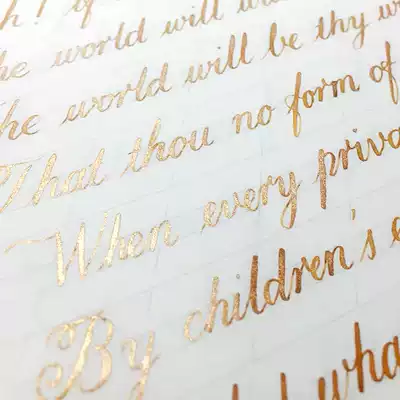 h! if
he world will wa
he world will be thy w
That thou no form of
When every priva
By children's e
wha